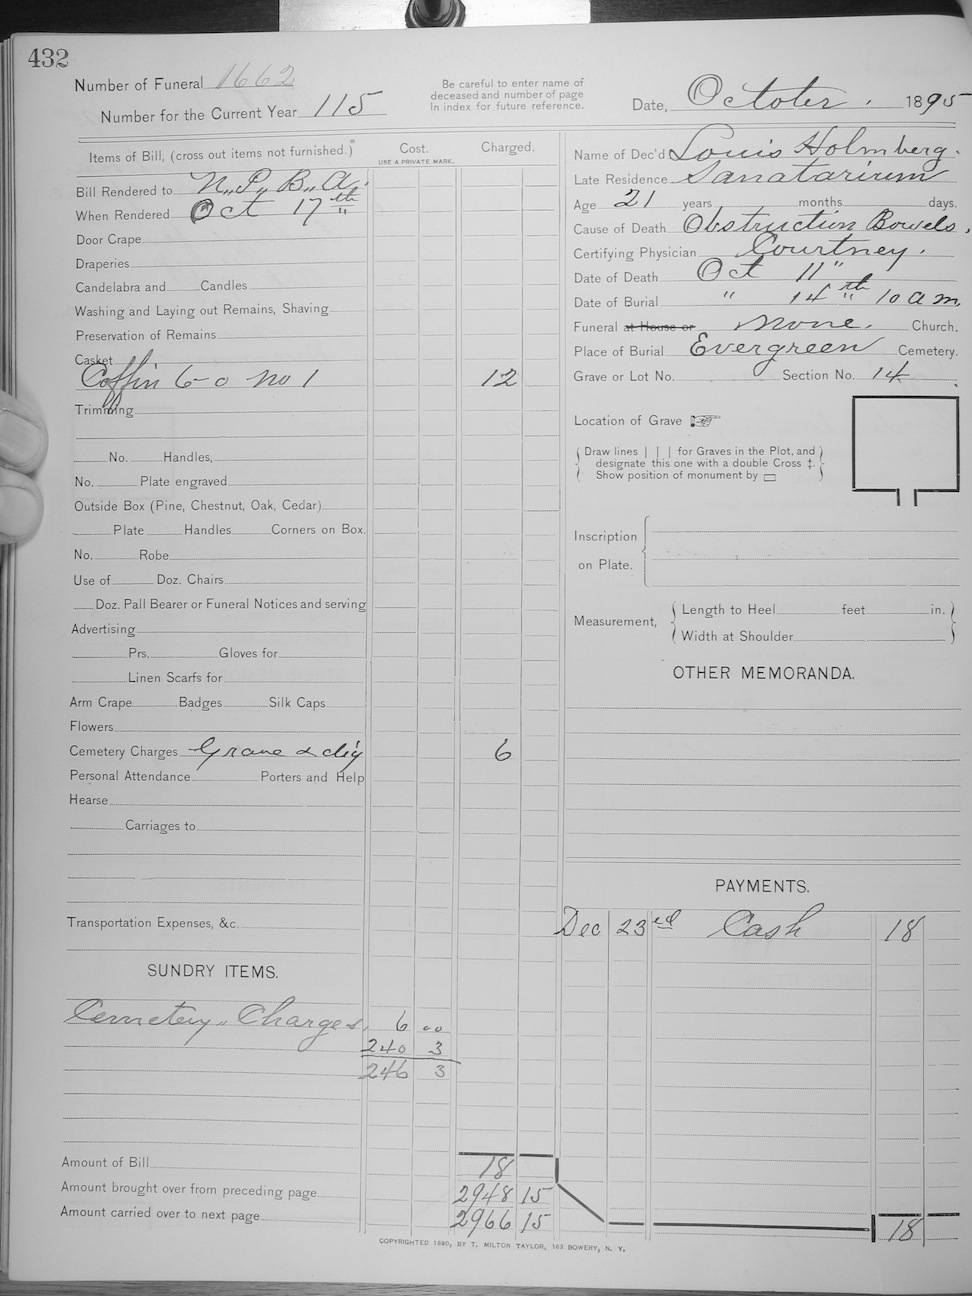 432
Number of Funeral 1662
Number for the Current Year 115
Be careful to enter name of
deceased and number of page
in index for future reference.
Date, October. 1895
Items of Bill, (cross out items not furnished.)
Cost.
USE A PRIVATE MARK.
Charged.
Bill Rendered to N.P.B.A.
When Rendered Oct 17th
Door Crape
Draperies
Candelabra and Candles
Washing and Laying out Remains, Shaving
Preservation of Remains
Casket
Coffin 6-0 No 1 12
Trimming
No. Handles,
No. Plate engraved
Outside Box (Pine, Chestnut, Oak, Cedar)
Plate Handles Corners on Box.
No. Robe
Use of Doz. Chairs
Doz. Pall Bearer or Funeral Notices and serving
Advertising
Prs. Gloves for
Linen Scarfs for
Arm Crape Badges Silk Caps
Flowers
Cemetery Charges Grave & dig 6
Personal Attendance Porters and Help
Hearse
Carriages to
Transportation Expenses, &c.
SUNDRY ITEMS.
Cemetery Charges. 6 00
240 3
246 3
Amount of Bill 18
Amount brought over from preceding page 2948 15
Amount carried over to next page 2966 15
Name of Dec'd Louis Holmberg.
Late Residence Sanatarium
Age 21 years months days.
Cause of Death Obstruction Bowels.
Certifying Physician Courtney.
Date of Death Oct 11"
Date of Burial " 14th 10 am
Funeral at House or None. Church.
Place of Burial Evergreen Cemetery.
Grave or Lot No. Section No. 14
Location of Grave
Draw lines | | | for Graves in the Plot, and
designate this one with a double Cross ‡.
Show position of monument by ▭
Inscription
on Plate.
Measurement,
Length to Heel feet in.
Width at Shoulder
OTHER MEMORANDA.
PAYMENTS.
Dec 23rd Cash 18
18
COPYRIGHTED 1890, BY T. MILTON TAYLOR, 163 BOWERY, N. Y.